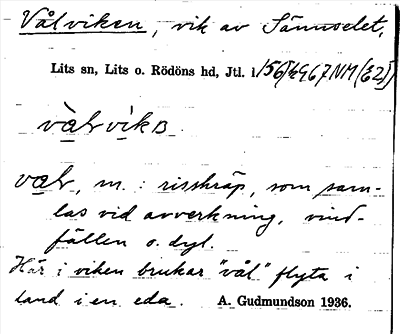 Vålviken, vik av Sännselet,
Lits sn, Lits o. Rödöns hd, Jtl. l.
vålvikB
vål, m. : risskräp, som sam-
las vid avverkning, vind-
fällen o. dyl.
Här i viken brukar "vål" flyta i
land i en eda. A. Gudmundson 1936.